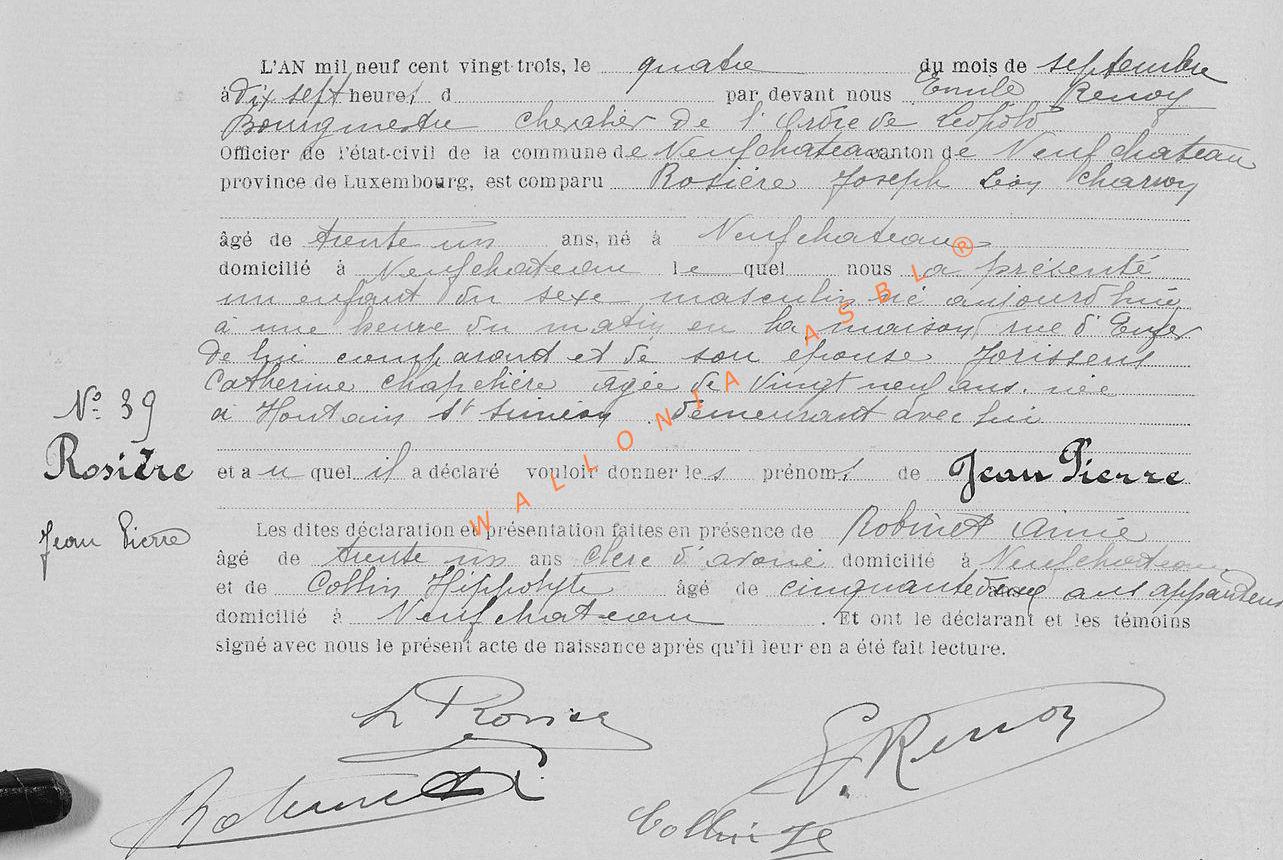 L'AN mil neuf cent vingt-trois, le quatre du mois de septembre
à Dix sept heures d par devant nous Emile Renoy
Bourgmestre Chevalier de l'Ordre de Léopold
Officier de l'état-civil de la commune de Neufchateau canton de Neufchateau
province de Luxembourg, est comparu Rosière Joseph Léon
âgé de trente un ans, né à Neufchateau
domicilié à Neufchateau le quel nous a présenté
un enfant du sexe masculin né aujourd'hui
à une heure du matin en la maison rue d'Enfer
de lui comparant et de son épouse Jorissens
Catherine agée de vingt neuf ans née
à Houtain St Siméon demeurant avec lui
N° 39
Rosière
Jean Pierre
et au quel il a déclaré vouloir donner les prénoms de Jean Pierre
Les dites déclaration et présentation faites en présence de Robinet Aimé
âgé de trente un ans clerc d'avoué domicilié à Neufchateau
et de Collin Hippolyte âgé de cinquante deux ans appariteur
domicilié à Neufchateau . Et ont le déclarant et les témoins
signé avec nous le présent acte de naissance après qu'il leur en a été fait lecture.
L Rosière
E. Renoy
Robinet
Collin
WALLONIA ASBL ®